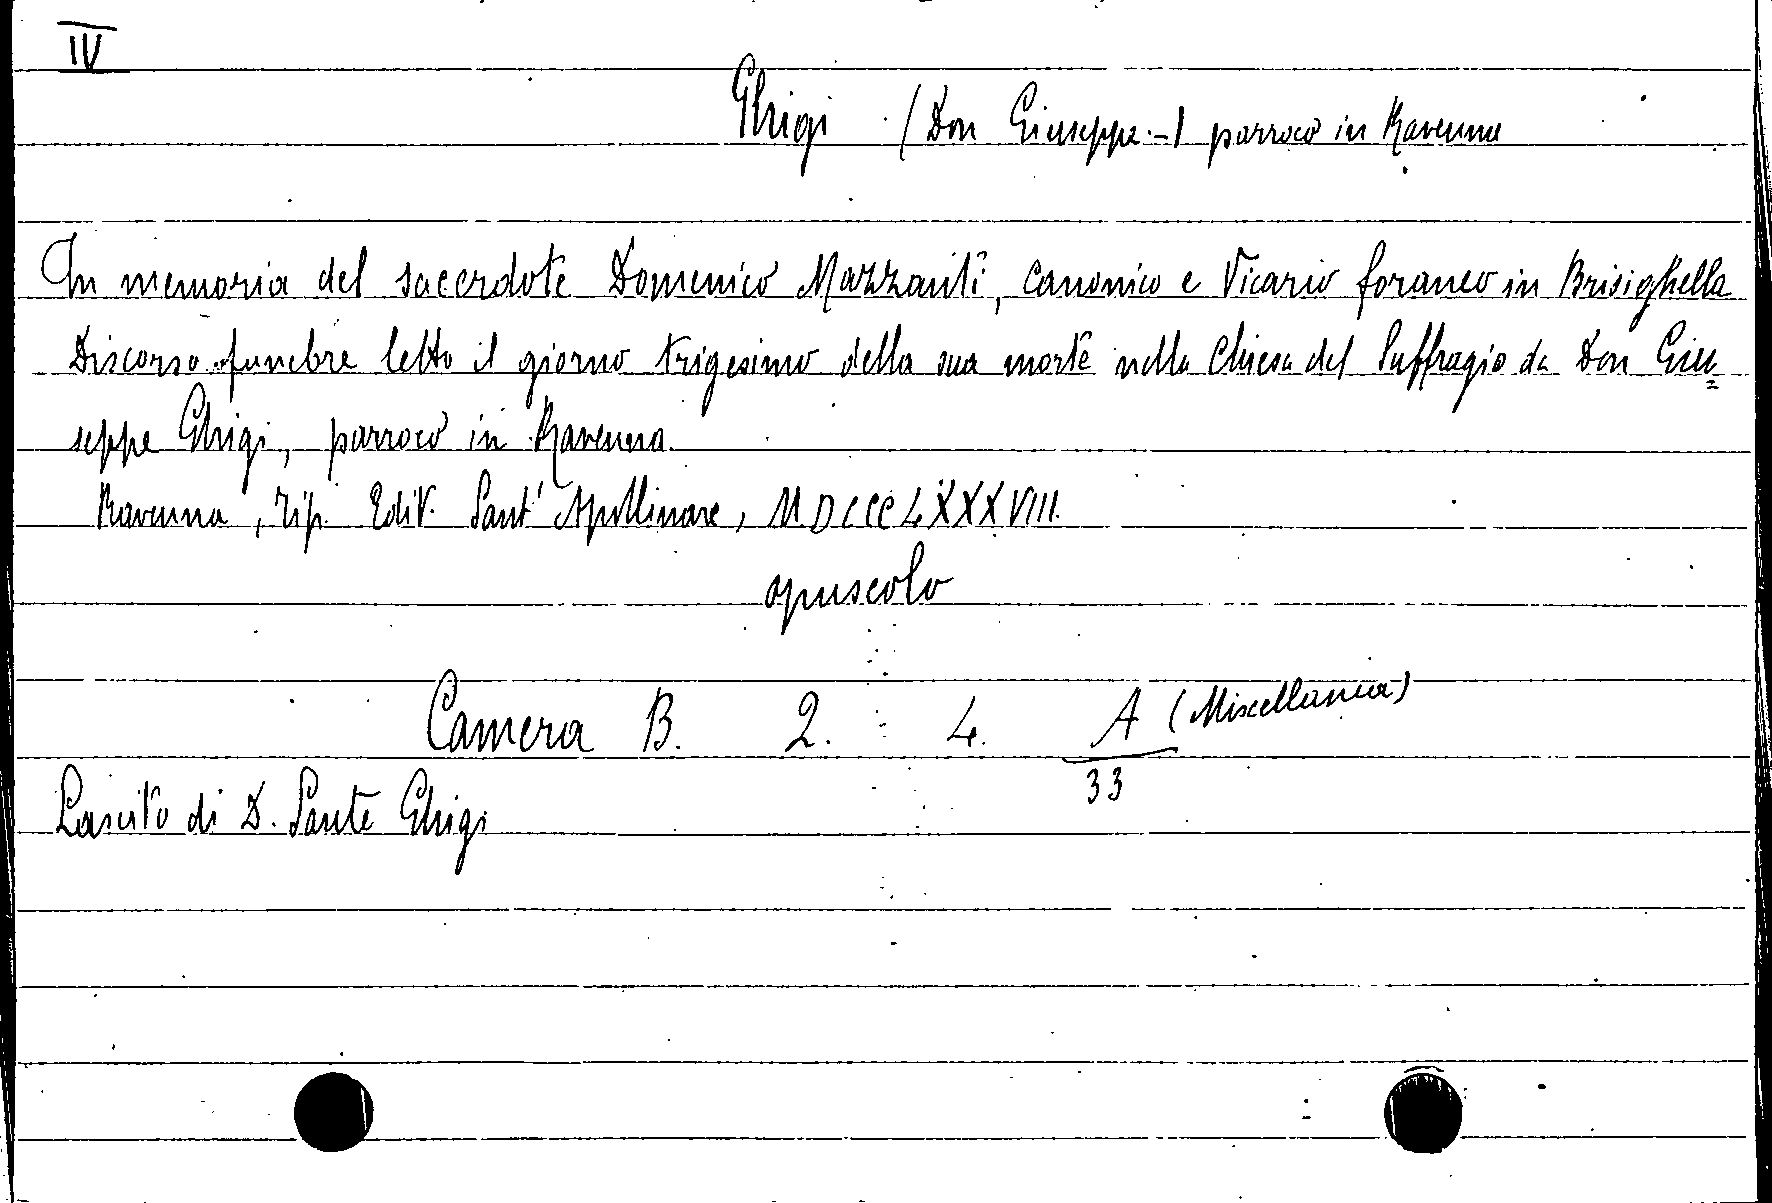 IV
Ghigi (Don Giuseppe -) parroco in Ravenna
In memoria del sacerdote Domenico Mazzanti, canonico e Vicario foraneo in Brisighella
Discorso funebre letto il giorno trigesimo della sua morte nella Chiesa del Suffragio da Don Giu=
seppe Ghigi, parroco in Ravenna.
Ravenna, Tip. Edit. Sant' Apollinare, MDCCCLXXXVIII.
opuscolo
Camera B. 2. 4. A (Miscellanea)
33
Lascito di D. Sante Ghigi